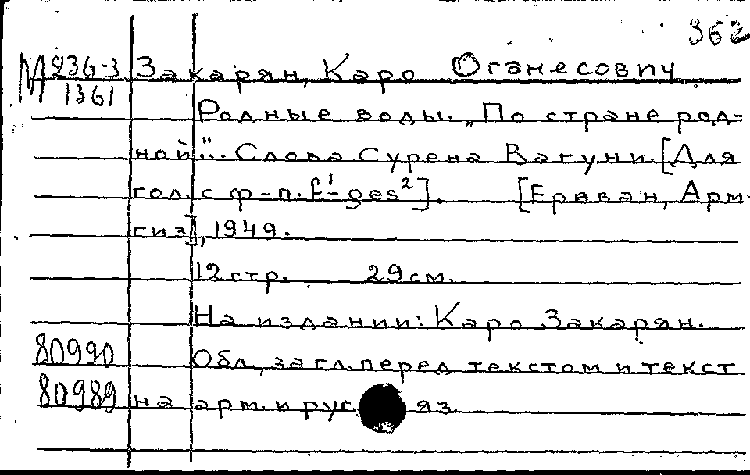 362
М 236-3 Закарян, Каро Оганесович
1361
Родные воды. „По стране род-
ной". Слова Сурена Вагуни. [Для
гол. с ф-п. f¹-ges²]. [Ереван, Арм-
гиз], 1949.
12 стр. 29 см.
На издании: Каро Закарян.
80990 Обл., загл. перед текстом и текст
80989 на арм. и рус яз.